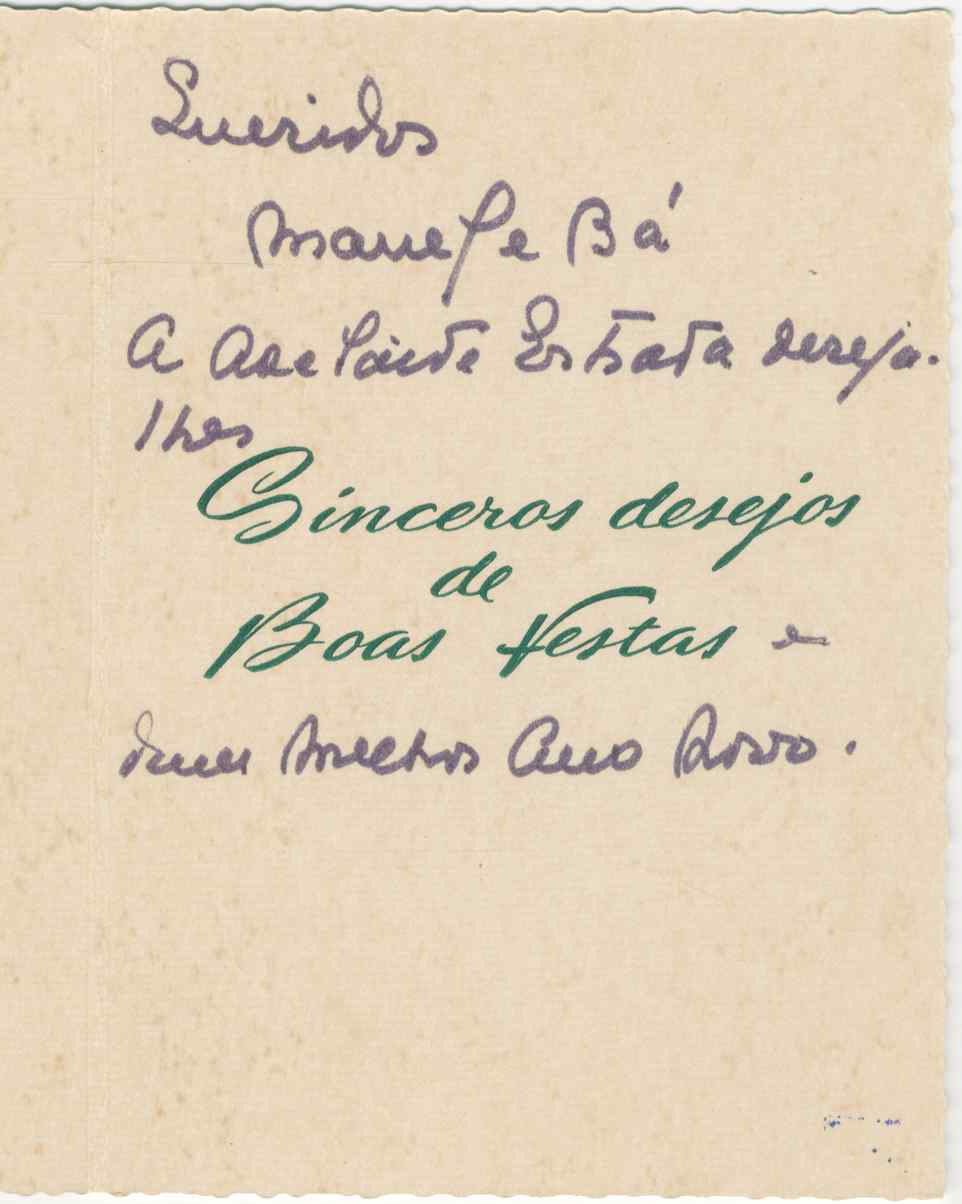 Queridos
Manel e Bá
A Adelaide Estrada deseja-
lhes
Sinceros desejos
de
Boas Festas e
dum Melhor Ano Novo.